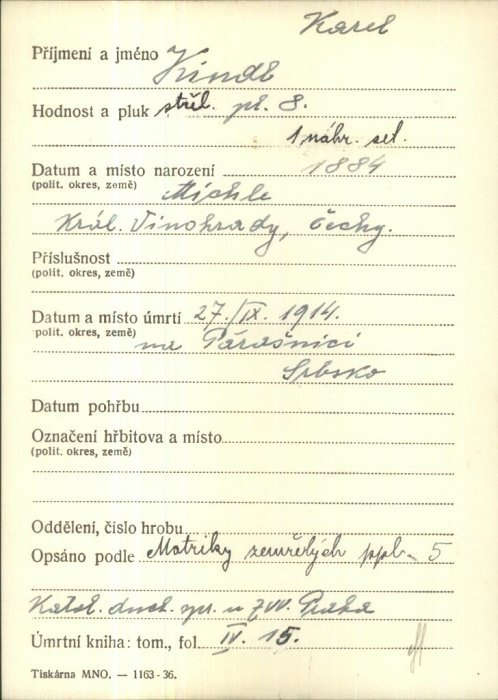 Karel
Příjmení a jméno Kindl
Hodnost a pluk střel. pl. 8.
1 náhr. set.
Datum a místo narození 1884
(polit. okres, země) Michle
Král. Vinohrady, Čechy.
Příslušnost
(polit. okres, země)
Datum a místo úmrtí 27./IX. 1914.
(polit. okres, země) na Párašnici
Srbsko
Datum pohřbu
Označení hřbitova a místo
(polit. okres, země)
Oddělení, číslo hrobu
Opsáno podle Matriky zemřelých ppl. 5
Katol. duch. spr. u ZVV. Praha
Úmrtní kniha: tom., fol. IV. 15.
Tiskárna MNO. — 1163-36.